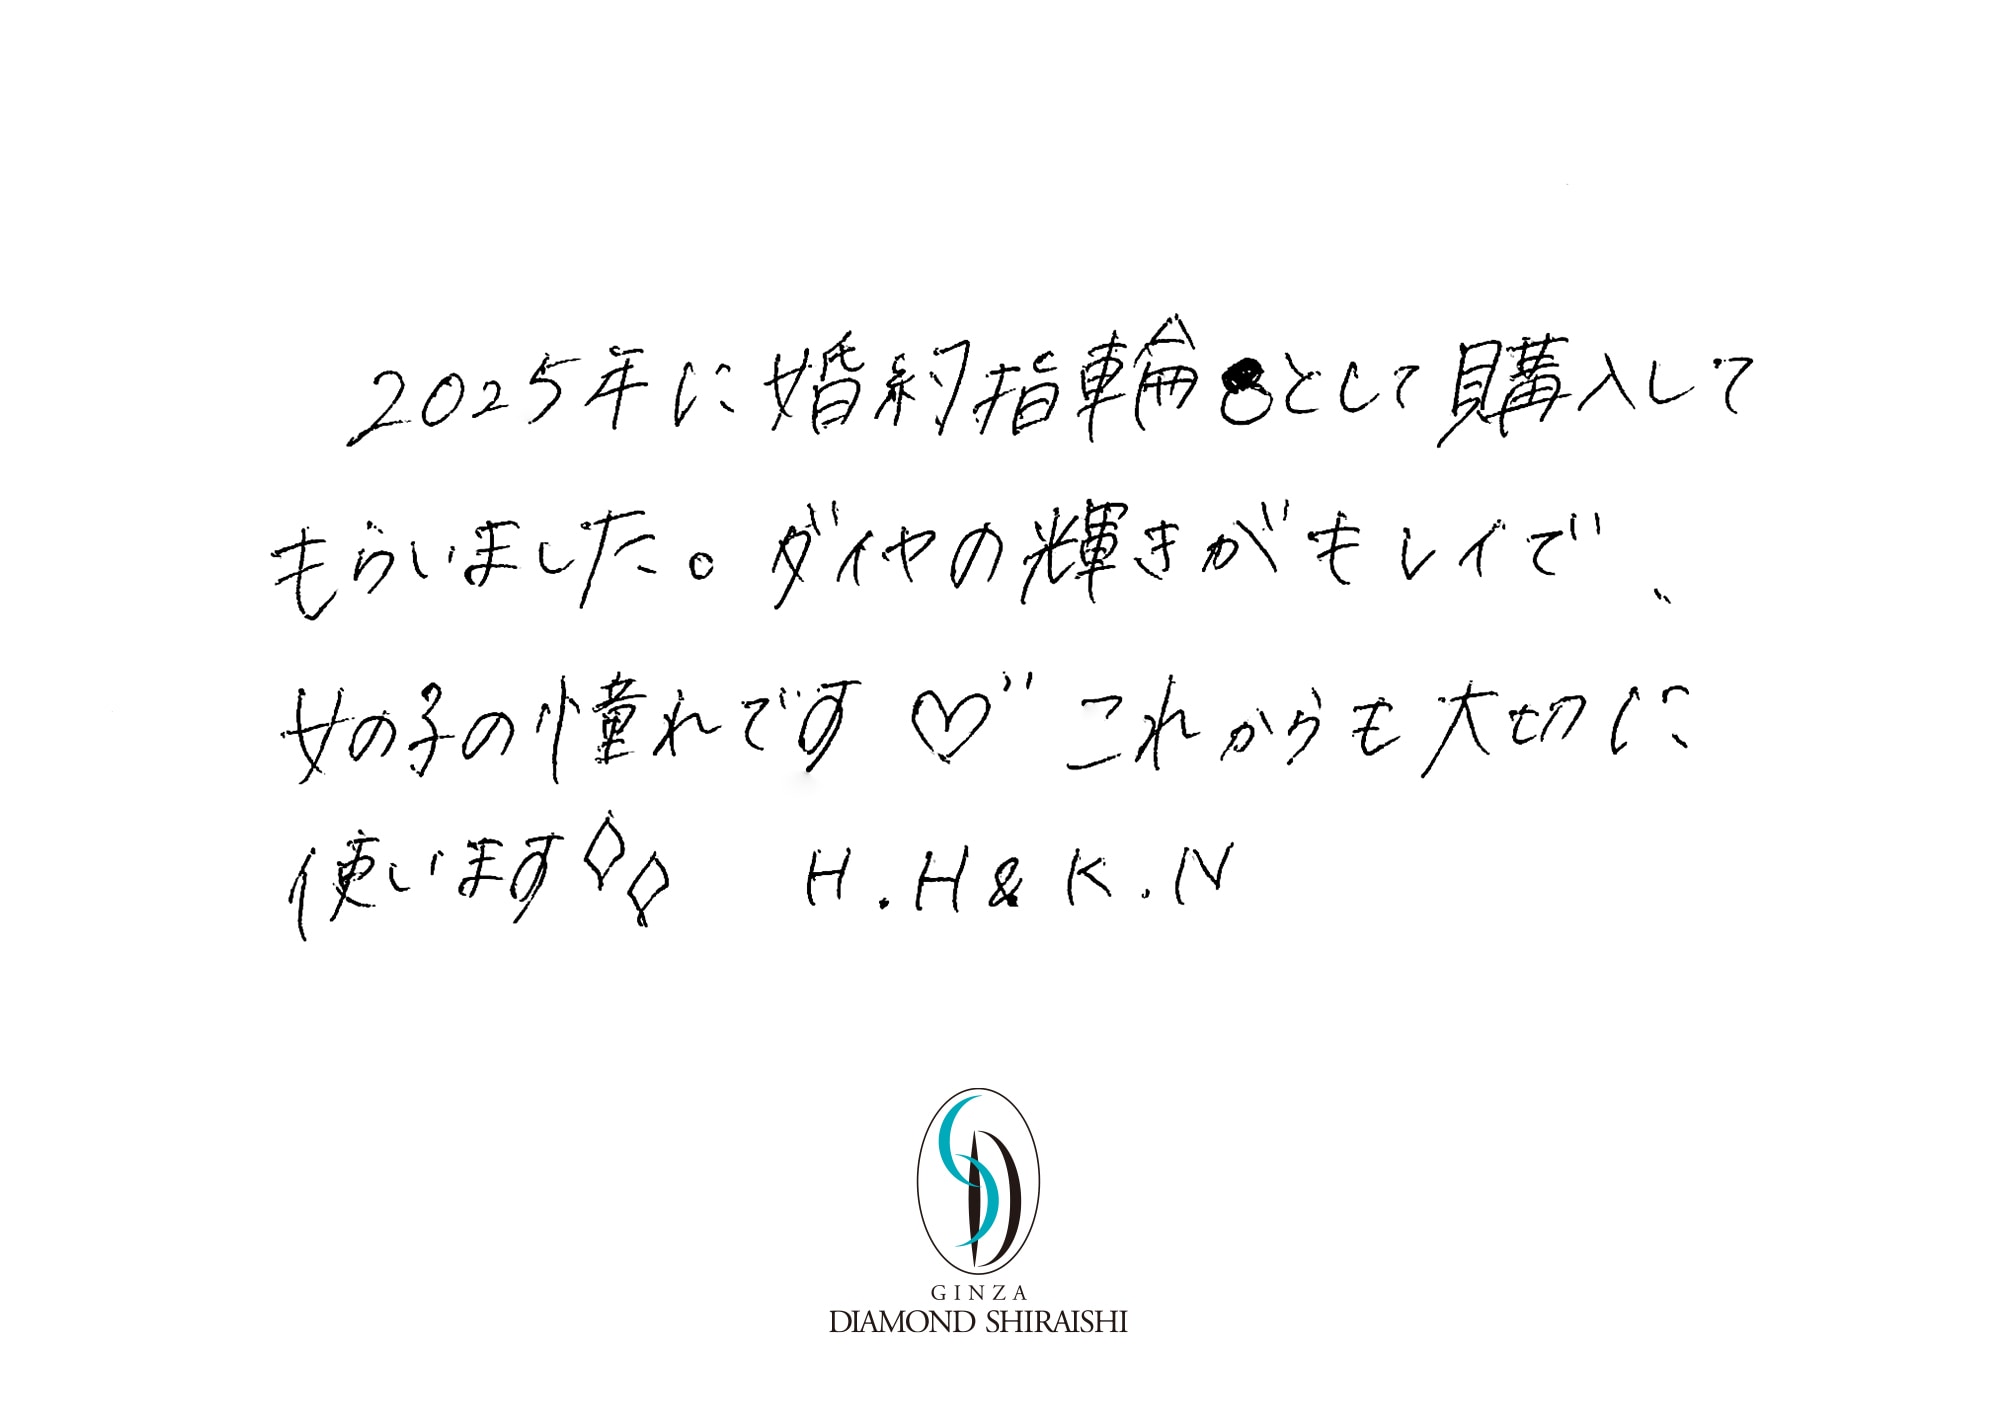 2025年に婚約指輪として購入して
もらいました。ダイヤの輝きがキレイで、
女の子の憧れです♡" これからも大切に
使います◇◇ H.H & K.N
GINZA
DIAMOND SHIRAISHI